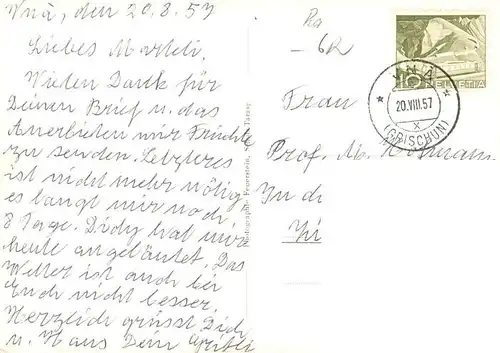 Vnà, den 20.8.57
Liebes Marteli.
Vielen Dank für
Deinen Brief u. das
Anerbieten mir Früchte
zu senden. Letzteres
ist nicht mehr nötig,
es langt mir noch
8 Tage. Didy hat mir
heute angeläutet. Das
Wetter ist auch bei
Euch nicht besser.
Herzlich grüsst Dich
u. Haus Dein Gritli
Photographie Feuerstein, Tarasp
10
HELVETIA
VNÀ
20.VIII.57
X
(GRISCHUN)
Frau
Prof. M. Hofmann